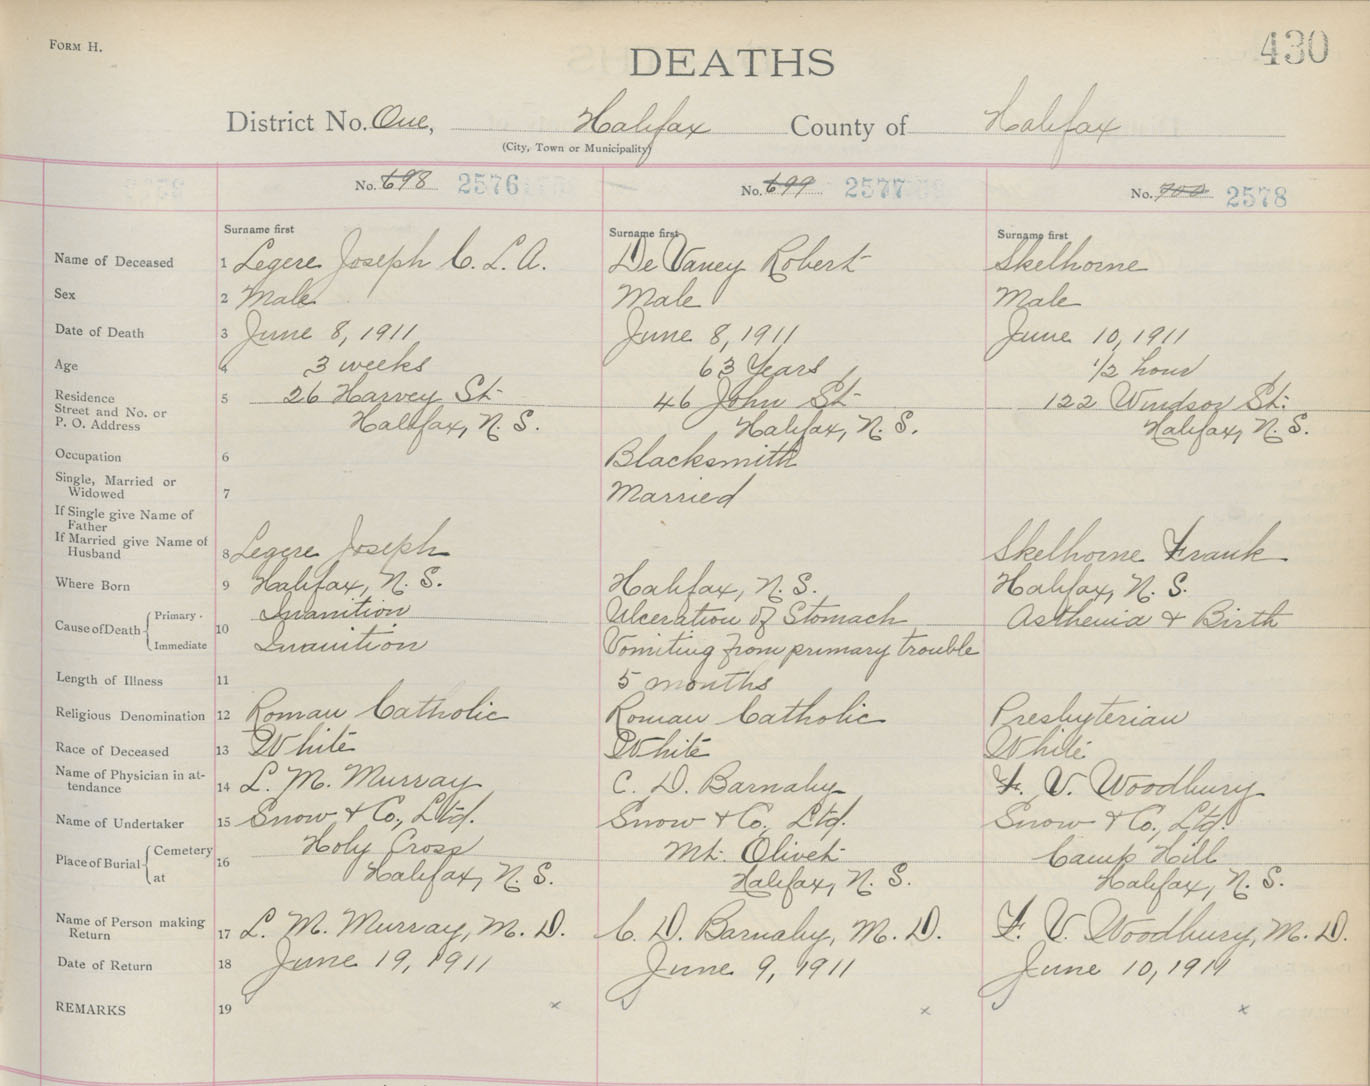 FORM H.
430
DEATHS
District No. One, Halifax County of Halifax
(City, Town or Municipality)
No. 698 2576 No. 699 2577 No. 700 2578
Surname first Surname first Surname first
Name of Deceased 1 Legere Joseph C. L. A. De Vaney Robert Skelhorne
Sex 2 Male Male Male
Date of Death 3 June 8, 1911 June 8, 1911 June 10, 1911
Age 4 3 weeks 63 Years 1/2 hour
Residence 5 26 Harvey St 46 John St 122 Windsor St.
Street and No. or
P. O. Address Halifax, N. S. Halifax, N. S. Halifax, N. S.
Occupation 6 Blacksmith
Single, Married or
Widowed 7 Married
If Single give Name of
Father
If Married give Name of
Husband 8 Legere Joseph Skelhorne Frank
Where Born 9 Halifax, N. S. Halifax, N. S. Halifax, N. S.
Cause of Death 10 Primary Inanition Ulceration of Stomach Asthenia & Birth
Immediate Inanition Vomiting from primary trouble
Length of Illness 11 5 months
Religious Denomination 12 Roman Catholic Roman Catholic Presbyterian
Race of Deceased 13 White White White
Name of Physician in at-
tendance 14 L. M. Murray C. D. Barnaby F. V. Woodbury
Name of Undertaker 15 Snow & Co., Ltd. Snow & Co., Ltd. Snow & Co., Ltd.
Place of Burial 16 Cemetery Holy Cross Mt. Olivet Camp Hill
at Halifax, N. S. Halifax, N. S. Halifax, N. S.
Name of Person making
Return 17 L. M. Murray, M. D. C. D. Barnaby, M. D. F. V. Woodbury, M. D.
Date of Return 18 June 19, 1911 June 9, 1911 June 10, 1911
REMARKS 19 x x x